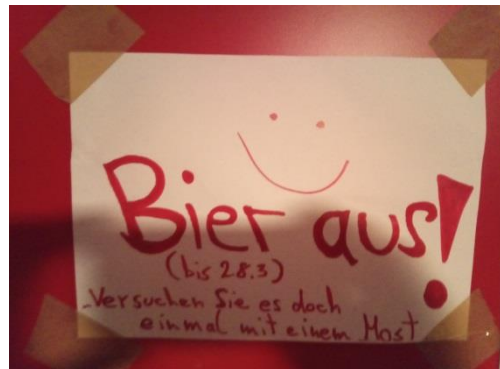 Bier aus!
(bis 28.3)
-Versuchen Sie es doch
einmal mit einem Most